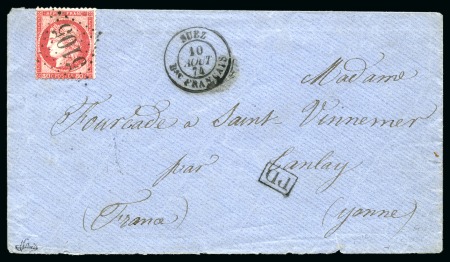 REPUB. FRANC.
5105
SUEZ
10
AOUT
74
Bau FRANÇAIS
Madame
Fourcade à Saint-Vinnemer
par Tanlay
PD
(France) (Yonne)